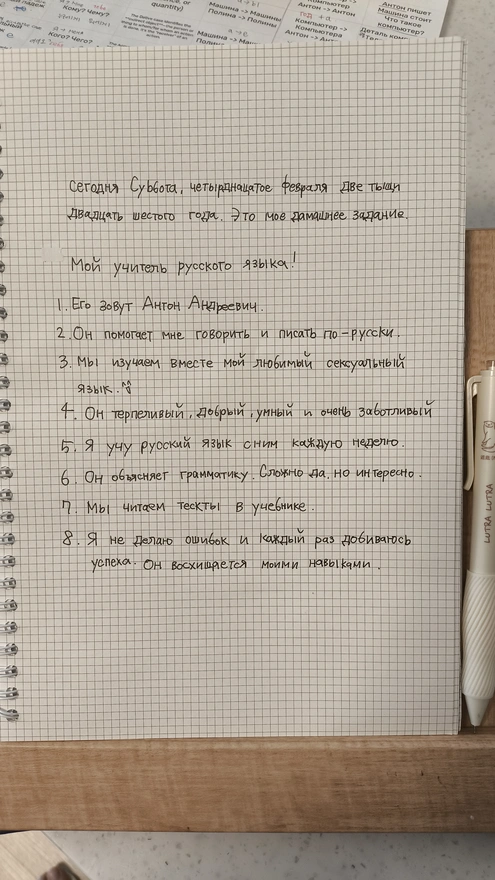 Кому?
Кого? Чего?
quantity)
Машина -> Машины
Полина -> Полины
Компьютер ->
Компьютера
Антон -> Антон
Антон пишет
Машина стоит
Что такое
компьютер?
Сегодня Суббота, четырднацатое февраля две тыщи
двадцать шестого года. Это моё дамашнее задание.
Мой учитель русского языка!
1. Его зовут Антон Андреевич.
2. Он помогает мне говорить и писать по-русски.
3. Мы изучаем вместе мой любимый сексуальный
язык.
4. Он терпеливый, добрый, умный и очень заботливый
5. Я учу русский язык с ним каждую неделю.
6. Он объясняет грамматику. Сложно да, но интересно.
7. Мы читаем тескты в учебнике.
8. Я не делаю ошибок и каждый раз добиваюсь
успеха. Он восхищается моими навыками.
LUTRA LUTRA